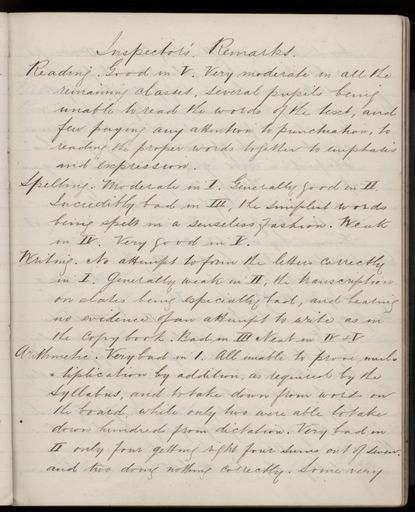 Inspector's Remarks.
Reading. Good in V. Very moderate in all the
remaining classes, several pupils being
unable to read the words of the text, and
few paying any attention to punctuation, to
reading the proper words together to emphasis
and expression.
Spelling. Moderate in I. Generally good in II
Incredibly bad in III, the simplest words
being spelt in a senseless fashion. Weak
in IV. Very good in V.
Writing. No attempt to form the letters correctly
in I. Generally weak in II, the transcription
on slates being especially bad, and bearing
no evidence of an attempt to write as in
the copy book. Bad in III Neat in IV & V
Arithmetic. Very bad in I. All unable to prove mul-
tiplication by addition, as required by the
Syllabus, and to take down from words on
the board, while only two were able to take
down hundreds from dictation. Very bad in
II only four getting right four sums out of seven.
and two doing nothing correctly. Some very